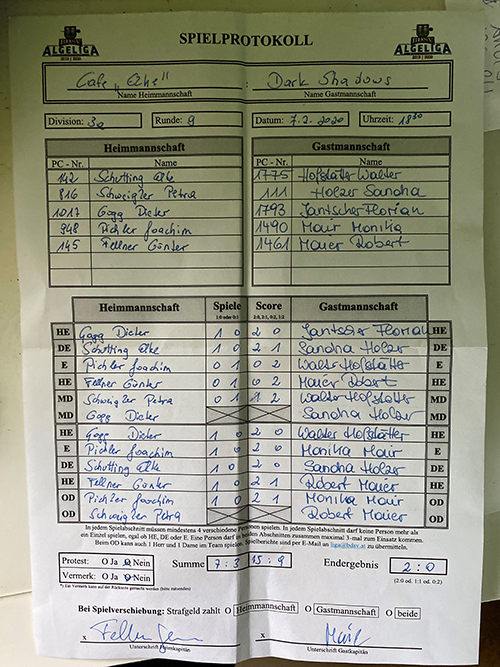 ALGELIGA SPIELPROTOKOLL ALGELIGA
2019 | 2020 2019 | 2020
Cafe "Elke" : Dark Shadows
Name Heimmannschaft Name Gastmannschaft
Division: 3a Runde: 9 Datum: 7.2.2020 Uhrzeit: 18 30
Heimmannschaft Gastmannschaft
PC - Nr. Name PC - Nr. Name
142 Schutting Elke 1775 Hofstätter Walter
816 Schweigler Petra 111 Holzer Sandra
1017 Gogg Dieter 1793 Jantscher Florian
948 Pichler Joachim 1490 Mair Monika
145 Fellner Günter 1461 Mauer Robert
Heimmannschaft Spiele Score Gastmannschaft
1:0 oder 0:1 2:0, 2:1, 0:2, 1:2
HE Gogg Dieter 1 0 2 0 Jantscher Florian HE
DE Schutting Elke 1 0 2 1 Sandra Holzer DE
E Pichler Joachim 0 1 0 2 Walter Hofstätter E
HE Fellner Günter 0 1 0 2 Mauer Robert HE
MD Schweigler Petra 0 1 1 2 Walter Hofstätter MD
MD Gogg Dieter Sandra Holzer MD
HE Gogg Dieter 1 0 2 0 Walter Hofstätter HE
E Pichler Joachim 1 0 2 0 Monika Mair E
DE Schutting Elke 1 0 2 0 Sandra Holzer DE
HE Fellner Günter 1 0 2 1 Robert Mauer HE
OD Pichler Joachim 1 0 2 1 Monika Mair OD
OD Schweigler Petra Robert Mauer OD
In jedem Spielabschnitt müssen mindestens 4 verschiedene Personen spielen. In jedem Spielabschnitt darf keine Person mehr als
ein Einzel spielen, egal ob HE, DE oder E. Eine Person darf in beiden Abschnitten zusammen maximal 3-mal zum Einsatz kommen.
Beim OD kann auch 1 Herr und 1 Dame im Team spielen. Spielberichte sind per E-Mail an liga@bdav.at zu übermitteln.
Protest: O Ja O Nein Summe 7 : 3 15 : 9 Endergebnis 2 : 0
Vermerk: O Ja O Nein (2:0 od. 1:1 od. 0:2)
Bei Spielverschiebung: Strafgeld zahlt O Heimmannschaft O Gastmannschaft O beide
x x Mair
Unterschrift Heimkapitän Unterschrift Gastkapitän